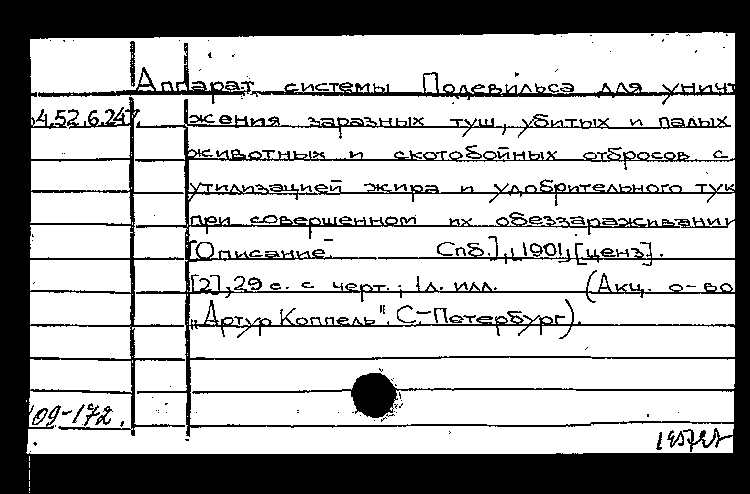 Аппарат системы Подевильса для унич
64.52.6.247. жения заразных туш, убитых и палых
животных и скотобойных отбросов с
утилизацией жира и удобрительного тук
при совершенном их обеззараживании
[Описание. Спб.], [1901, [ценз].
[2], 29 с. с черт.; 1 л. илл. (Акц. о-во
"Артур Коппель". С.-Петербург).
109-172.